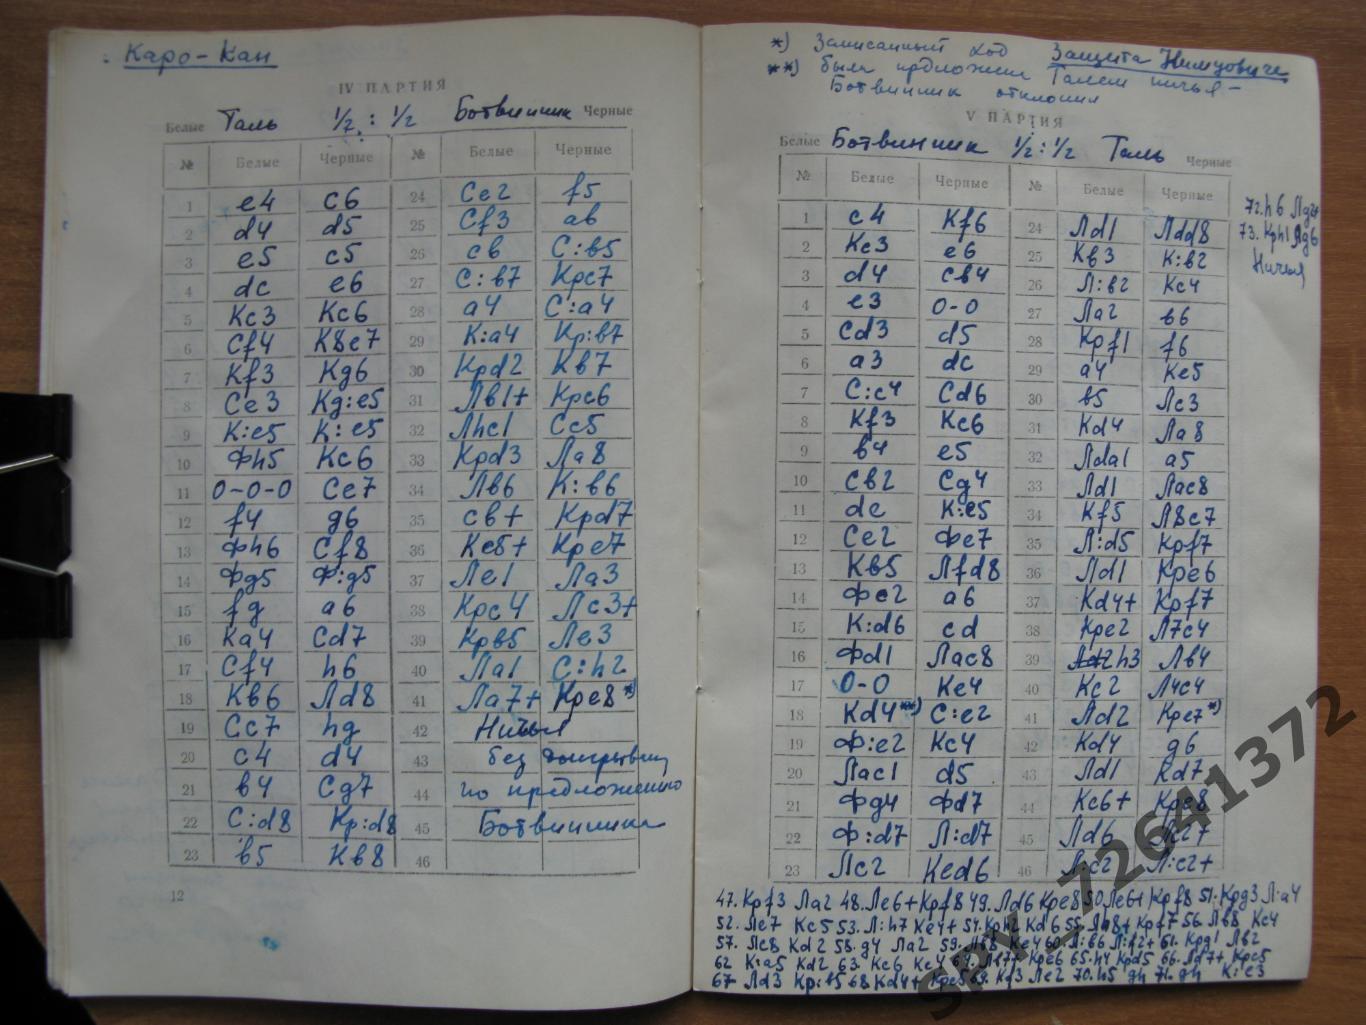 Каро-Кан
IV ПАРТИЯ
Белые Таль ½ : ½ Ботвинник Черные
№ Белые Черные № Белые Черные
1 e4 c6 24 Ce2 f5
2 d4 d5 25 Cf3 a6
3 e5 c5 26 cв C:в5
4 dc e6 27 C:в7 Kpc7
5 Kc3 Kc6 28 a4 C:a4
6 Cf4 K8e7 29 K:a4 Kp:в7
7 Kf3 Kg6 30 Kpd2 Kв7
8 Ce3 Kg:e5 31 Лв1+ Kpc6
9 K:e5 K:e5 32 Лhc1 Cc5
10 Фh5 Kc6 33 Kpd3 Ла8
11 0-0-0 Ce7 34 Лв6 K:в6
12 f4 g6 35 cв+ Kpd7
13 Фh6 Cf8 36 Kc5+ Kpe7
14 Фg5 Ф:g5 37 Лe1 Ла3
15 fg a6 38 Kpc4 Лc3+
16 Ka4 Cd7 39 Kpв5 Лe3
17 Cf4 h6 40 Ла1 C:h2
18 Kв6 Лd8 41 Ла7+ Kpe8*)
19 Cc7 hg 42 Ничья
20 c4 d4 43 без доигрывания
21 в4 Cg7 44 по предложению
22 C:d8 Kp:d8 45 Ботвинника
23 в5 Kв8 46
12
*) Записанный ход Защита Нимцовича
**) была предложена Талем ничья -
Ботвинник отклонил
V ПАРТИЯ
Белые Ботвинник ½ : ½ Таль Черные
№ Белые Черные № Белые Черные
1 c4 Kf6 24 Лd1 Лdd8
2 Kc3 e6 25 Kв3 K:в2
3 d4 Cв4 26 Л:в2 Kc4
4 e3 0-0 27 Ла2 в6
5 Cd3 d5 28 Kpf1 f6
6 a3 dc 29 a4 Ke5
7 C:c4 Cd6 30 в5 Лc3
8 Kf3 Kc6 31 Kd4 Ла8
9 в4 e5 32 Лda1 a5
10 Cв2 Cg4 33 Лd1 Лac8
11 de K:e5 34 Kf5 Л8c7
12 Ce2 Фe7 35 Л:d5 Kpf7
13 Kв5 Лfd8 36 Лd1 Kpe6
14 Фc2 a6 37 Kd4+ Kpf7
15 K:d6 cd 38 Kpe2 Л7c4
16 Фd1 Лac8 39 h3 Лв4
17 0-0 Ke4 40 Kc2 Л4c4
18 Kd4**) C:e2 41 Лd2 Kpe7*)
19 Ф:e2 Kc4 42 Kd4 g6
20 Лac1 d5 43 Лd1 Kd7
21 Фg4 Фd7 44 Kc6+ Kpe8
22 Ф:d7 Л:d7 45 Лd6
23 Лc2 Ked6 46 Л:c2 Л:c2+
72. h6 Лg2+
73. Kph1 Лg6
Ничья
47. Kpf3 Ла2 48. Лe6+ Kpf8 49. Лd6 Kpe8 50. Лe6+ Kpf8 51. Kpg3 Л:a4
52. Лe7 Kc5 53. Л:h7 Ke4+ 54. Kph2 Kd6 55. Лh8+ Kpf7 56. Лв8 Kc4
57. Лc8 Kd2 58. g4 Ла2 59. Лв8 Ke4 60. Л:в6 Л:f2+ 61. Kpg1 Лв2
62 K:a5 Kd2 63. Kc6 Kc4 64. Лв7+ Kpe6 65. h4 Kpd5 66. Лd7+ Kpc5
67. Лd3 Kp:в5 68 Kd4+ Kpc5 69. Kf3 Лe2 70. h5 71. gh K:e3
SPY_72641372